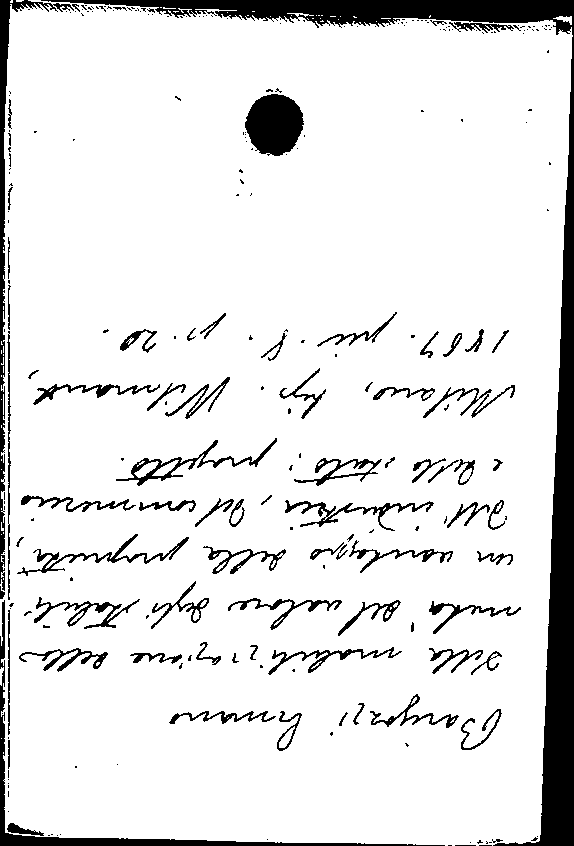 Barigozzi Ermano
Della mobilizzazione della
metà del valore degli stabili,
in vantaggio della proprietà,
dell'industria, del commercio
e dello stato; progetto.
Milano, tip. Wilmant,
1867. pic. 8. p. 20.